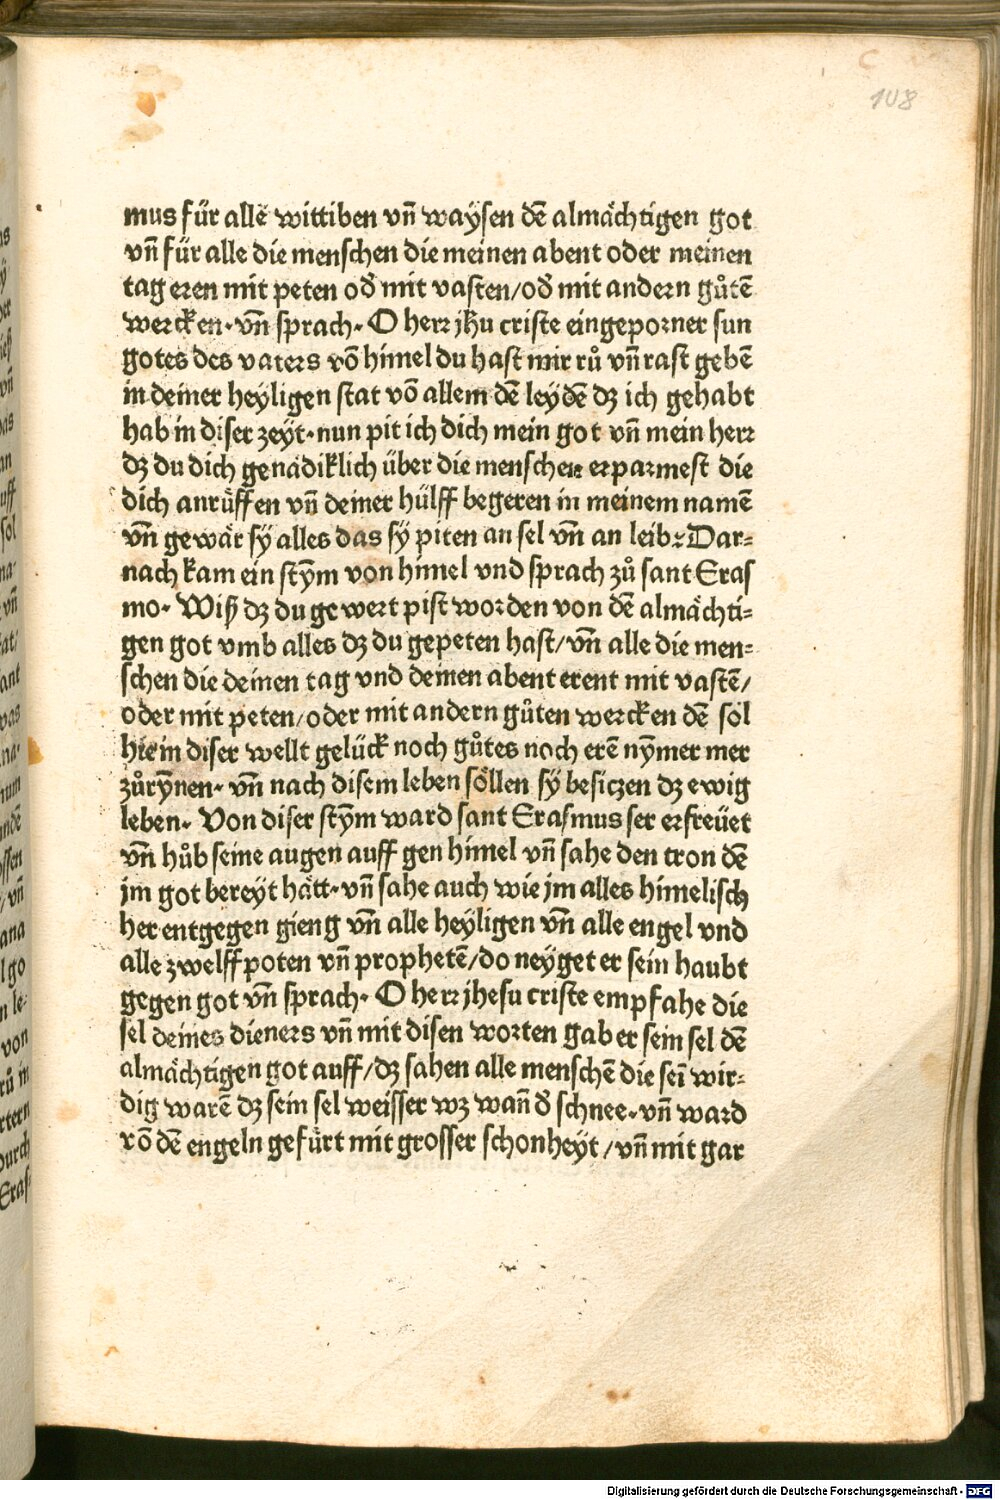 108
mus für alle wittiben vn̄ waÿsen dē almächtigen got
vn̄ für alle die menschen die meinen abent oder meinen
tag eren mit peten od̛ mit vasten/od̛ mit andern gůtē
wercken·vn̄ sprach· O herr jħu criste eingeporner sun
gotes des vaters vō himel du hast mir rů vn̄ rast gebē
in deiner heyligen stat vō allem dē leydē dʒ ich gehabt
hab in diser zeÿt·nun pit ich dich mein got vn̄ mein herr
dʒ du dich genädiklich über die menschen erparmest die
dich anrůffen vn̄ deiner hülff begeren in meinem namē
vn̄ gewär sÿ alles das sÿ piten an sel vn̄ an leib· Dar⸗
nach kam ein stym̄ von himel vnd sprach zů sant Eras
mo· Wiß dʒ du gewert pist worden von dē almächti⸗
gen got vmb alles dʒ du gepeten hast/vn̄ alle die men⸗
schen die deinen tag vnd deinen abent erent mit vastē/
oder mit peten/oder mit andern gůten wercken dē sol
hie in diser wellt gelück noch gůtes noch erē nym̄er mer
zůryn̄nen· vn̄ nach disem leben söllen sÿ besiczen dʒ ewig
leben· Von diser stym̄ ward sant Erasmus ser erfreüet
vn̄ hůb seine augen auff gen himel vn̄ sahe den tron dē
jm got bereyt hätt·vn̄ sahe auch wie jm alles himelisch
her entgegen gieng vn̄ alle heyligen vn̄ alle engel vnd
alle zwelffpoten vn̄ prophetē/do neÿget er sein haubt
gegen got vn̄ sprach· O herr jhesu criste empfahe die
sel deines dieners vn̄ mit disen worten gab er sein sel dē
almächtigen got auff/dʒ sahen alle menschē die sein̄ wir⸗
dig warē dʒ sein sel weisser wʒ wann̄ d̛ schnee·vn̄ ward
vō dē engeln gefürt mit grosser schonheyt/vn̄ mit gar
Digitalisierung gefördert durch die Deutsche Forschungsgemeinschaft - DFG